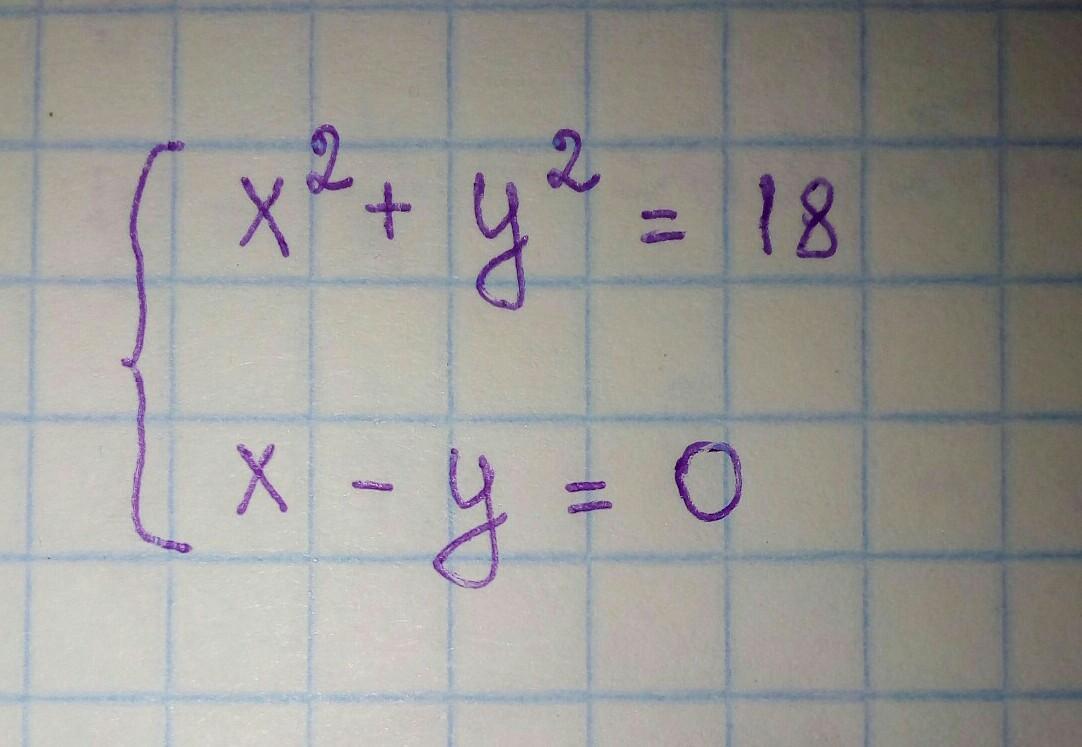 x² + y² = 18
x - y = 0